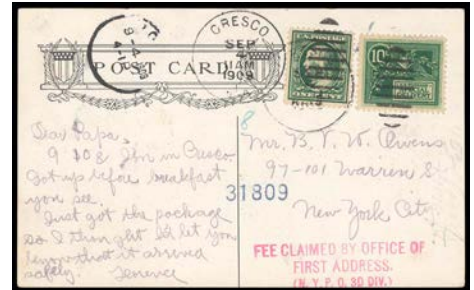 CRESCO
SEP
4
11AM
1909
U.S. POSTAGE
10
POST CARD
Dear Papa,
9 10 & I'm in Cresco.
Got up before breakfast
you see.
Just got the package
so I thought I'd let you
know that it arrived
safely. Terence
8
Mr. B. V. W. Owens
97-101 Warren St
New York City
31809
FEE CLAIMED BY OFFICE OF
FIRST ADDRESS.
(N. Y. P. O. 3D DIV.)